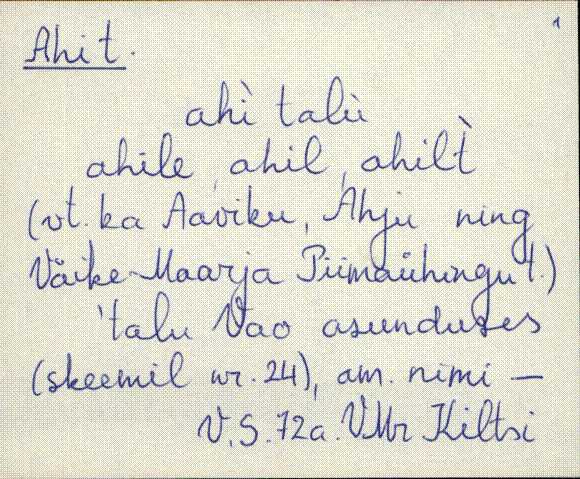 1
Ahi t.
ahì talù
ahile, ahil, ahilt̀
(vt. ka Aaviku, Ahju ning
Väike-Maarja Piimaühingu t.)
'talu Vao asunduses
(skeemil nr. 24), am. nimi —
V.S. 72a. VMr Kiltsi